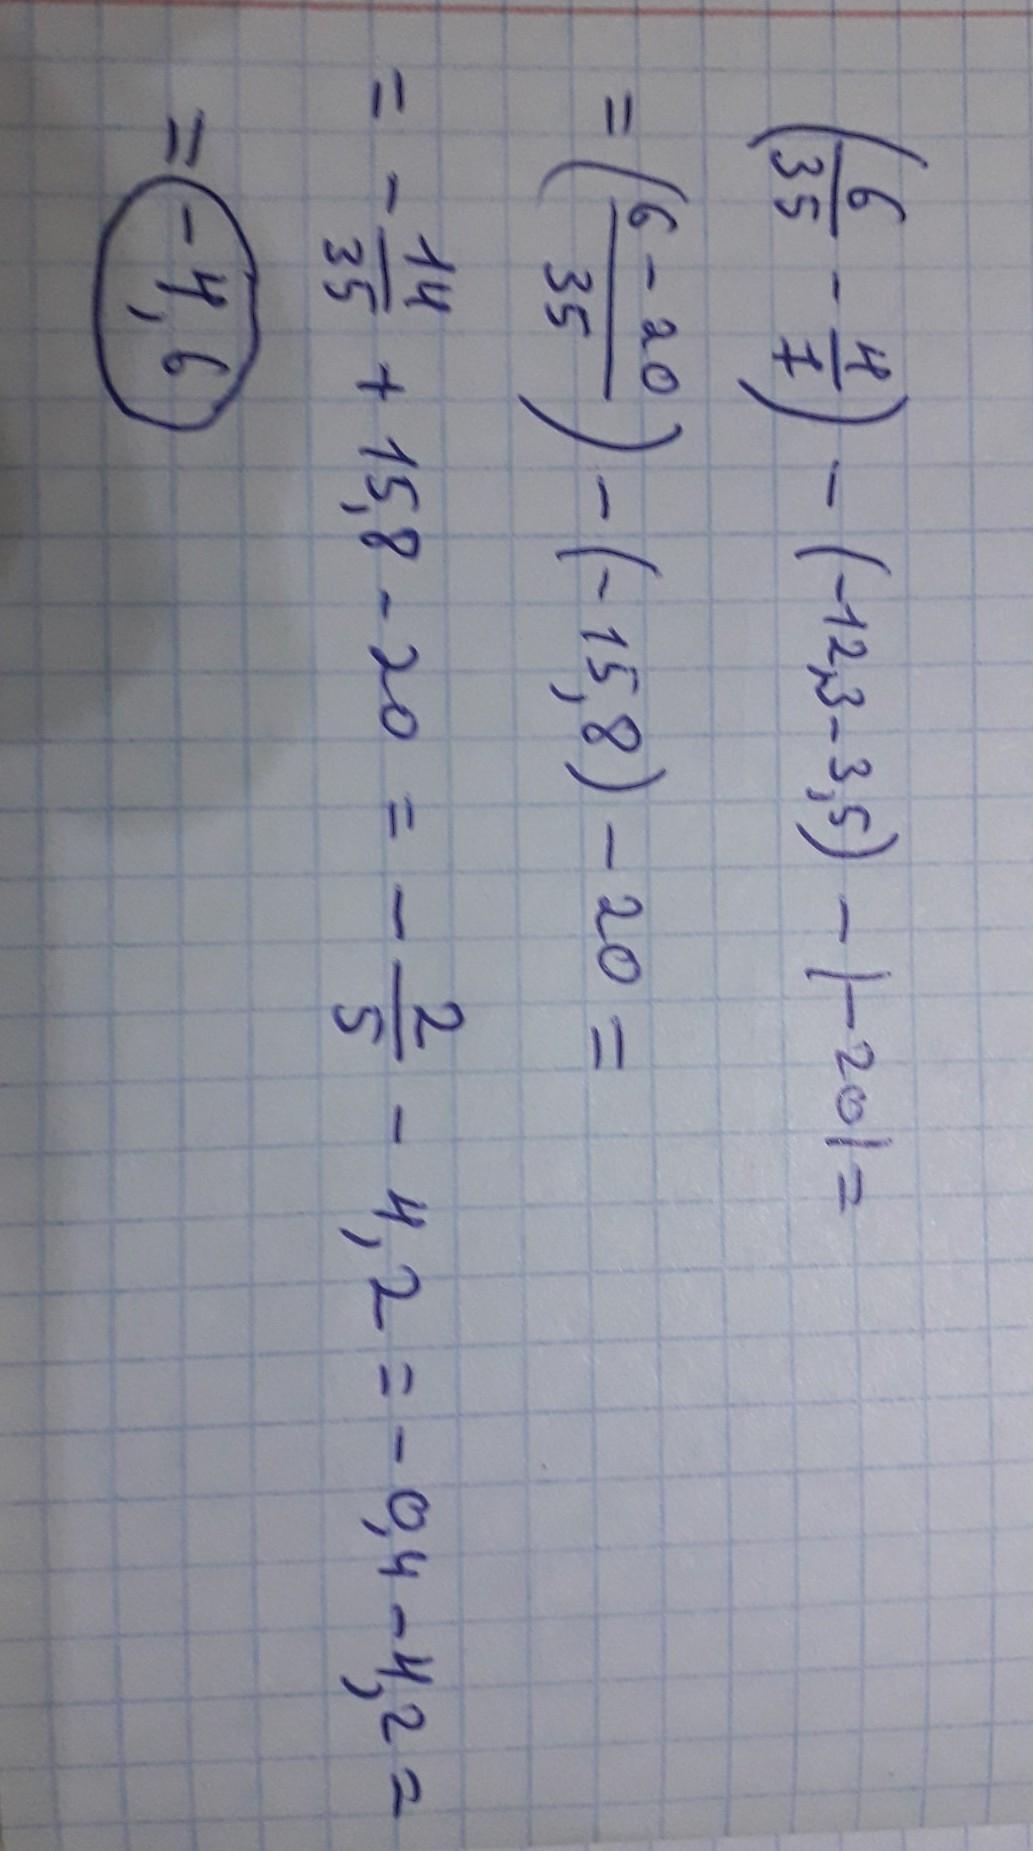 (6/35 - 4/7) - (-12,3-3,5) - |-20| =
= (6-20/35) - (-15,8) - 20 =
= - 14/35 + 15,8 - 20 = - 2/5 - 4,2 = -0,4-4,2 =
= -4,6